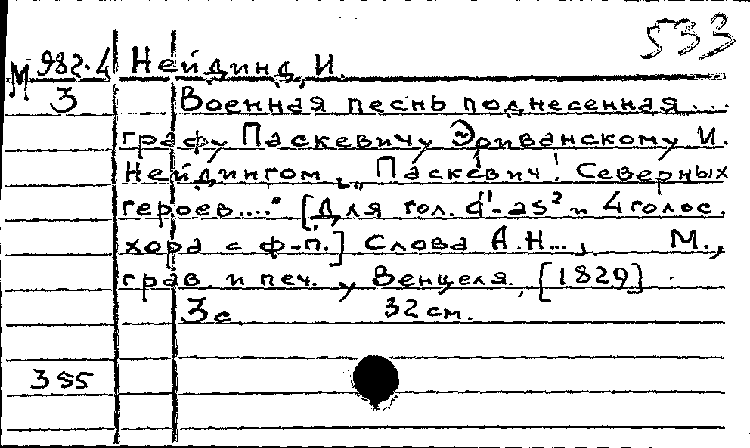 533
М 982.4 Нейдинд, И.
3 Военная песнь поднесенная ...
графу Паскевичу Эриванскому И.
Нейдингом „Паскевич! Северных
героев...." [Для гол. d¹-as² и 4 голос.
хора с ф-п.] Слова А.Н..., М.,
грав. и печ. у Венцеля, [1829]
3 с 32 см.
355